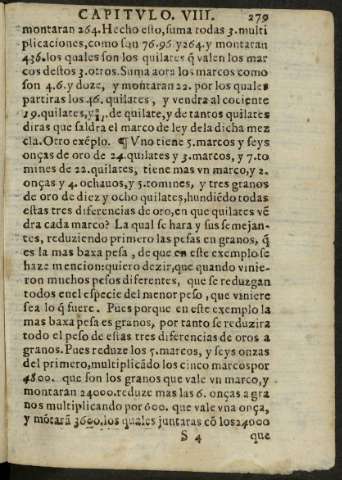 CAPITVLO. VIII. 279
montaran 264. Hecho esto, suma todas 3. multi
plicaciones, como son 76. 96. y 264. y montaran
436. los quales son los quilates q̃ valen los mar
cos destos 3. otros. Suma aora los marcos como
son 4. 6. y doze, y montaran 22. por los quales
partiras los 46. quilates, y vendra al cociente
19. quilates, y de quilate, y de tantos quilates
diras que saldra el marco de ley de la dicha mez
cla. Otro exẽplo. ¶ Vno tiene 5. marcos y seys
onças de oro de 24. quilates y 3. marcos, y 7. to
mines de 22. quilates, tiene mas vn marco, y 2.
onças y 4. ochauos, y 5. tomines, y tres granos
de oro de diez y ocho quilates, hundiẽdo todas
estas tres diferencias de oro, en que quilates vẽ
dra cada marco? La qual se hara y sus semejan-
tes, reduziendo primero las pesas en granos, q̃
es la mas baxa pesa, de que en este exemplo se
haze mencion: quiero dezir, que quando vinie-
ron muchos pesos diferentes, que se reduzgan
todos en el especie del menor peso, que viniere
sea lo q̃ fuere. Pues porque en este exemplo la
mas baxa pesa es granos, por tanto se reduzira
todo el peso de estas tres diferencias de oros a
granos. Pues reduze los 5. marcos, y seys onzas
del primero, multiplicãdo los cinco marcos por
4800. que son los granos que vale vn marco, y
montaran 24000. reduze mas las 6. onças a gra
nos multiplicando por 600. que vale vna onça,
y mõtarã 3600. los quales juntaras cõ los 24000
S 4 que